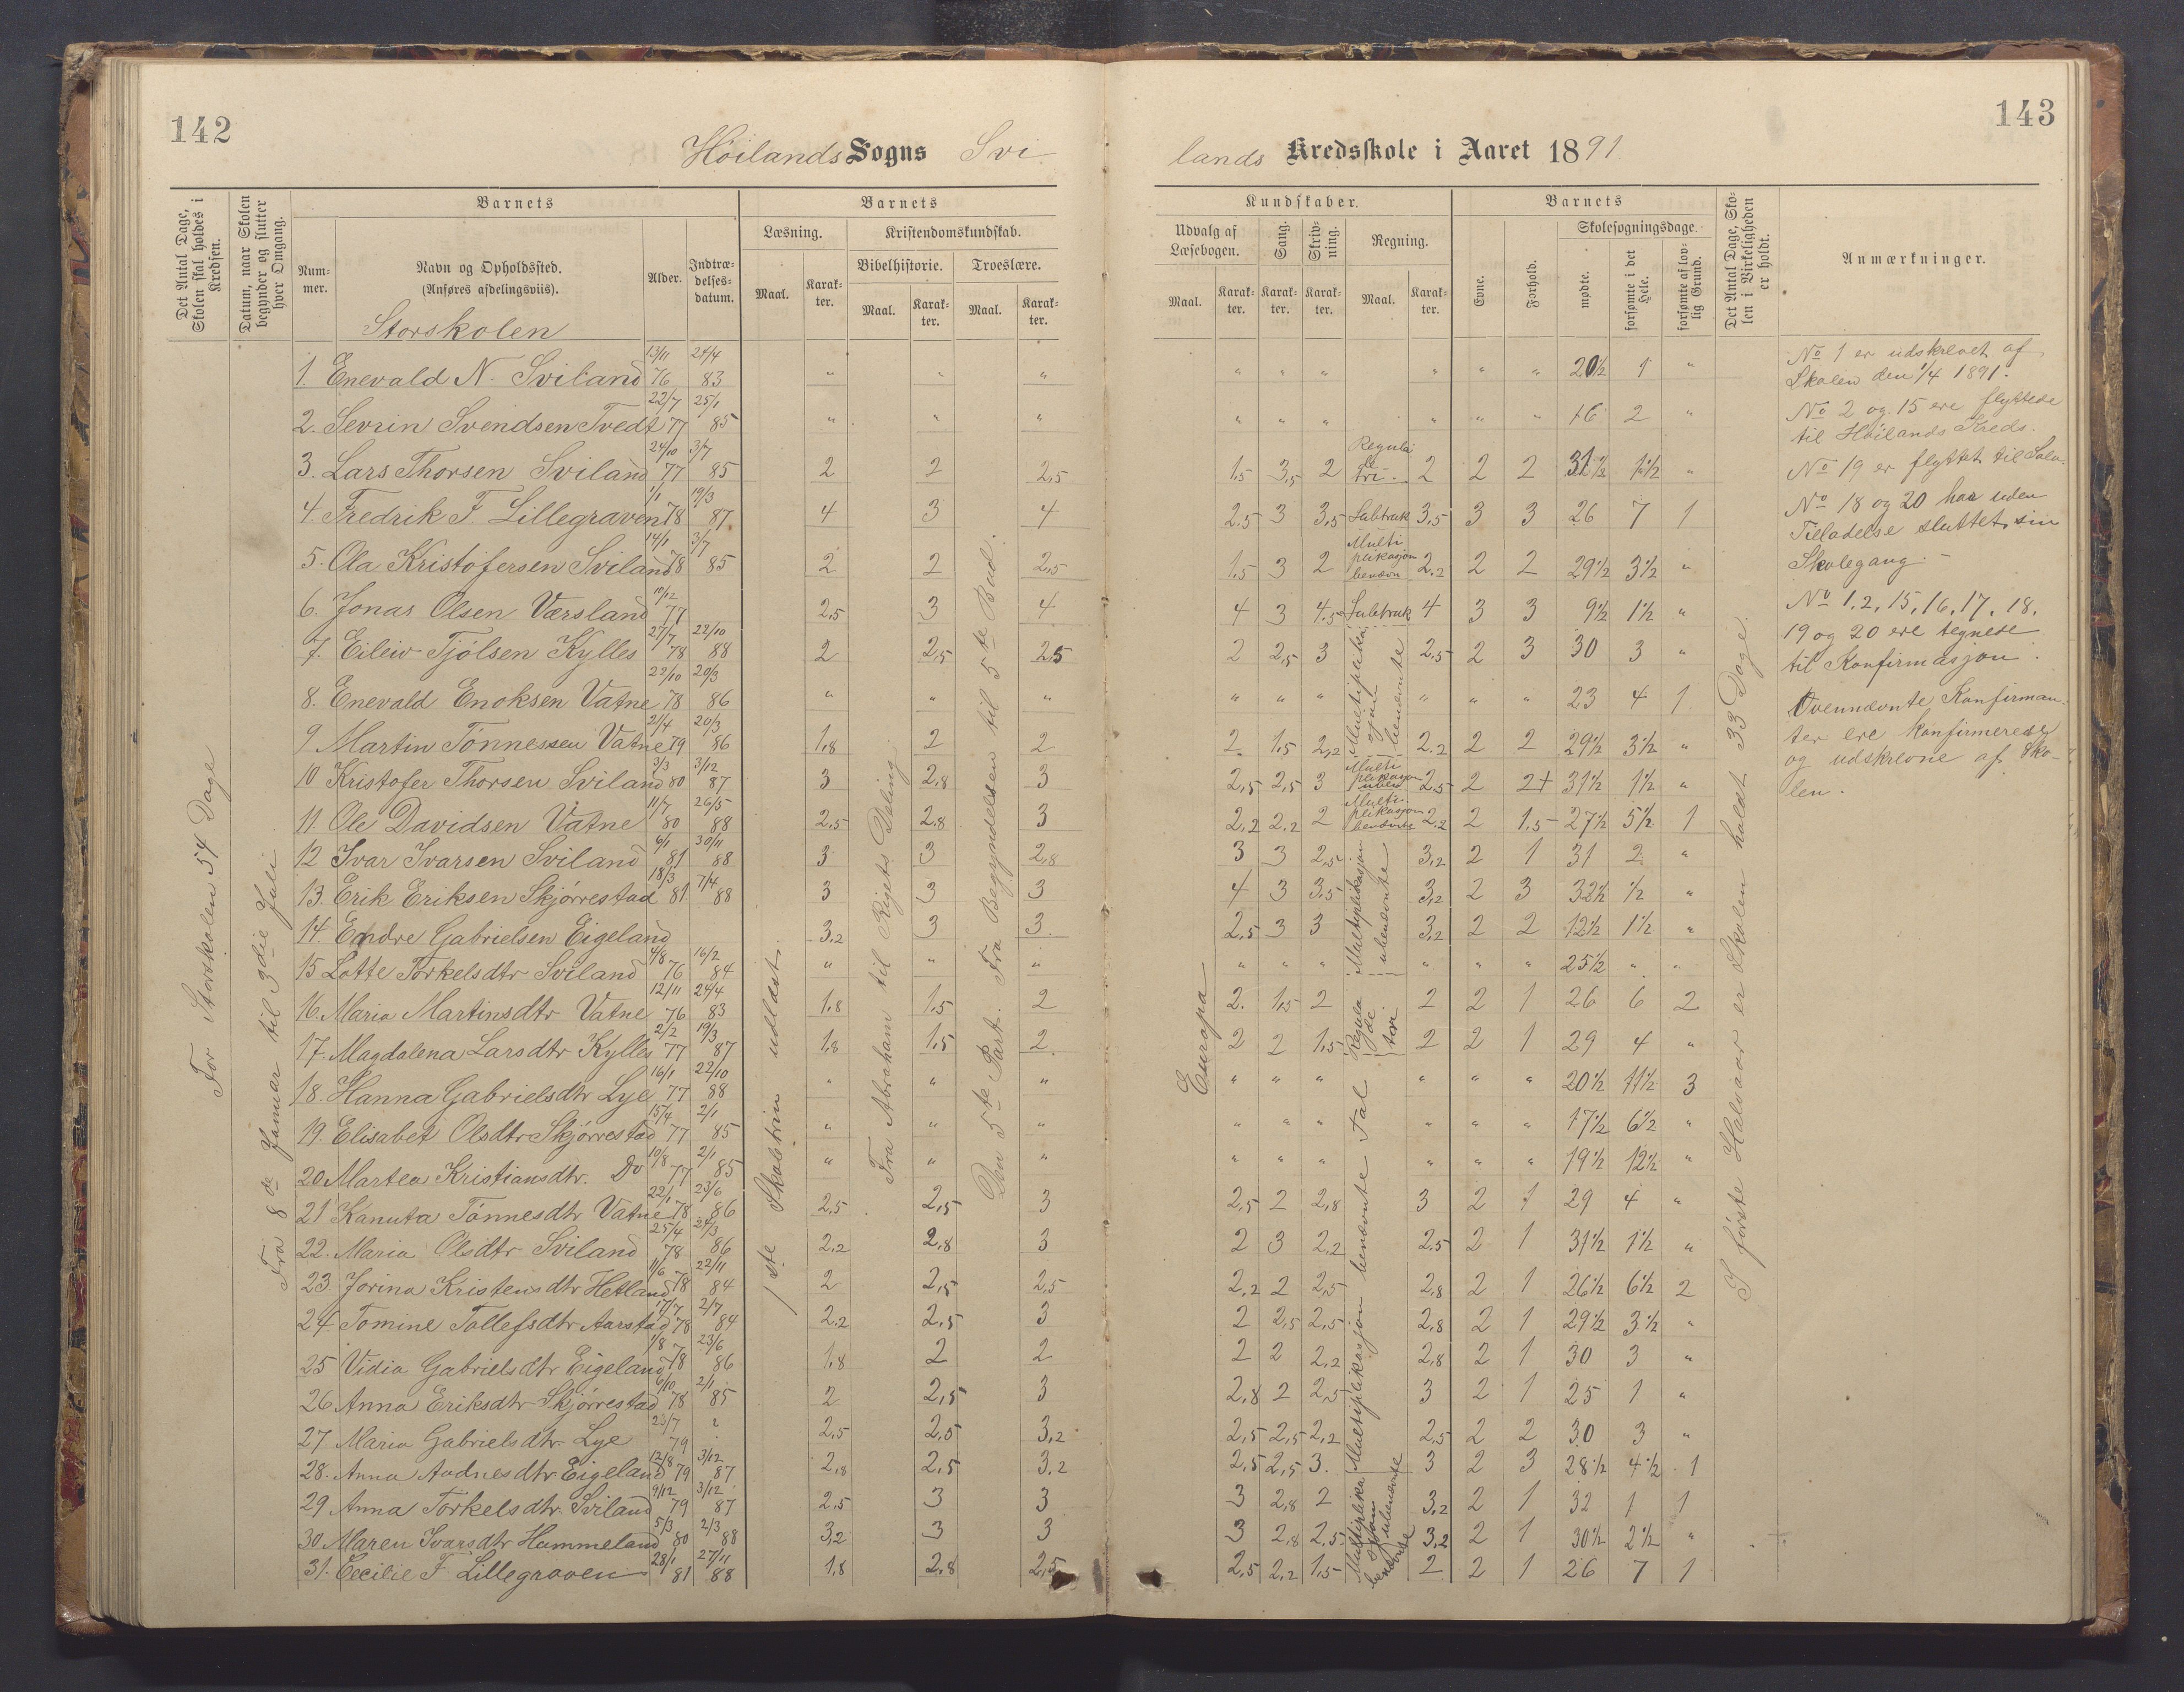 142
143
Höilands Sogns Svi
lands Kredsskole i Aaret 1891
Det Antal Dage, Skolen skal holdes i Kredsen.
Datum, naar Skolen begynder og slutter hver Omgang.
Barnets
Barnets
Kundskaber.
Barnets
Num-mer.
Navn og Opholdssted.
(Anføres afdelingsviis).
Alder.
Indtræ-delses-datum.
Læsning.
Kristendomskundskab.
Bibelhistorie.
Troeslære.
Maal.
Karak-ter.
Maal.
Karak-ter.
Maal.
Karak-ter.
Udvalg af Læsebogen.
Sang.
Skriv-ning.
Regning.
Maal.
Karak-ter.
Karak-ter.
Karak-ter.
Maal.
Karak-ter.
Evne.
Forhold.
Skolesøgningsdage.
mødte.
forsømte i det Hele.
forsømte af lov-lig Grund.
Det Antal Dage, Sko-len i Virkeligheden er holdt.
Anmærkninger.
Storskolen
For Storskolen 54 Dage
Fra 8de Januar til 3die Juli
1ste Skoletrin udlæst.
Fra Abraham til Rigets Deling
Den 5te Part. Fra Begyndelsen til 5te Bud.
Europa
I første Halvaar er Skolen holdt 33 Dage.
1. Enevald N. Sviland 13/11 76 24/4 83 " " " " " " " " " 20½ 1 "
2. Sevrin Svendsen Tvedt 22/7 77 25/1 85 " " " " " " " " " 16 2 "
3. Lars Thorsen Sviland 24/10 77 3/7 85 2 2 2,5 1,5 3,5 2 Regula de tri. 2 2 2 31½ 1½ "
4. Fredrik F. Lillegraven 1/1 78 19/3 87 4 3 4 2.5 3 3,5 Subtrak 3,5 3 3 26 7 1
5. Ola Kristofersen Sviland 14/1 78 3/7 85 2 2 2,5 1,5 3 2 Multiplikasjon benævn 2.2 2 2 29½ 3½ "
6. Jonas Olsen Værsland 77 2,5 3 4 4 3 4.5 Subtrak 4 3 3 9½ 1½ "
7. Eileiv Tjölsen Kylles 27/7 78 22/10 88 2 2,5 2,5 2 2,5 3 Multiplikasjon benævnte 2.5 2 3 30 3 "
8. Enevald Enoksen Vatne 22/10 78 20/3 86 " " " " " " " " " 23 4 1
9 Martin Tönnessen Vatne 2/4 79 20/3 86 1,8 2 2 2 1,5 2,2 2.2 2 2 29½ 3½ "
10 Kristofer Thorsen Sviland 3/3 80 3/12 87 3 2,8 3 2,5 2,5 3 Multiplikasjon uben 2,5 2 2+ 31½ 1½ "
11. Ole Davidsen Vatne 11/7 80 26/5 88 2,5 2.8 3 2,2 2.2 2 Multiplikasjon benævnte 2,2 2 1,5 27½ 5½ 1
12 Ivar Ivarsen Sviland 6/1 81 30/11 88 3 3 2,8 3 3 2,5 Multiplikasjon ubenævnte 3,2 2 1 31 2 "
13. Erik Eriksen Skjörrestad 18/3 81 7/4 88 3 3 3 4 3 3,5 3,2 2 3 32½ ½ "
14. Endre Gabrielsen Eigeland 3,2 3 3. 2,5 3 3 3,2 2 2 12½ 1½ "
15 Lotte Torkelsdtr Sviland 4/8 76 16/2 84 " " " " " " " " " 25½ " "
16. Maria Martinsdtr Vatne 12/11 76 24/4 83 1,8 1,5 2 2. 1,5 2 Regula de tri 2 2 1 26 6 2
17. Magdalena Larsdtr Kylles 2/2 77 19/3 87 1,8 1,5 2. 2 2 1,5 2 2 1 29 4 "
18. Hanna Gabrielsdtr Lye 16/1 77 22/10 88 " " " " " " " " " 20½ 11½ 3
19. Elisabet Olsdtr Skjörrestad 15/4 77 2/1 85 " " " " " " " " " 17½ 6½ "
20 Martea Kristiansdtr. Do 10/8 77 2/1 85 " " " " " " " " " 19½ 12½ "
21 Kanuta Tönnesdtr Vatne 22/1 78 23/6 86 2,5 2,5 3 2,5 2 2,8 Multiplikasjon benævnte Tal 3 2 1 29 4 "
22. Maria Olsdtr Sviland 25/4 78 24/3 86 2,2 2,8 3 2 3 2,2 2.5 2 1 31½ 1½ "
23. Jorina Kristensdtr Hetland 11/6 78 22/11 84 2 2,5 2,5 2,2 2 2,5 2,8 2 1 26½ 6½ 2
24. Tomine Tollefsdtr Aarstad 17/7 78 2/7 84 2.2 2,5 3 2 2,5 2,5 2,8 2 1 29½ 3½ "
25 Vidia Gabrielsdtr Eigeland 1/8 78 23/6 86 1,8 2 2 2 2 2,2 2,8 2 1 30 3 "
26 Anna Eriksdtr Skjörrestad 6/10 78 2/1 85 2 2,5 3 2,8 2 2,5 3 2 1 25 1 "
27. Maria Gabrielsdtr. Lye 23/7 79 2,5 2,5 3,2 2,5 2,5 2,2 2,5 2 2 30 3 "
28. Anna Aadnesdtr Eigeland 12/8 79 3/12 87 2,8 2,5 3,2 2,5 2,5 3. 3 2 3 28½ 4½ 1
29 Anna Torkelsdtr. Sviland 9/12 79 3/12 87 2,5 3 3 3 2,8 2 Multiplikasjon ubenævnte 3,2 2 1 32 1 1
30 Maren Ivarsdtr Hammeland 5/3 80 2/3 88 3,2 3 3 3 2,8 2,5 3,2 2 1 30½ 2½ "
31. Cecilie F. Lillegraven 28/1 81 27/11 88 1,8 2,8 2,5 2,5 2,2 1,5 benævnte 2 2 1 26 7 1
No 1 er udskrevet af
Skolen den 1/4 1891.
No 2 og 15 ere flyttede
til Höilands Kreds.
No 19 er flyttet til Sola.
No 18 og 20 har uden
Tilladelse sluttet sin
Skolegang.
No 1, 2, 15, 16, 17, 18,
19 og 20 ere tegnede
til Konfirmasjon.
Ovennævnte Konfirman-
ter ere konfirmerede
og udskrevne af Sko-
len.